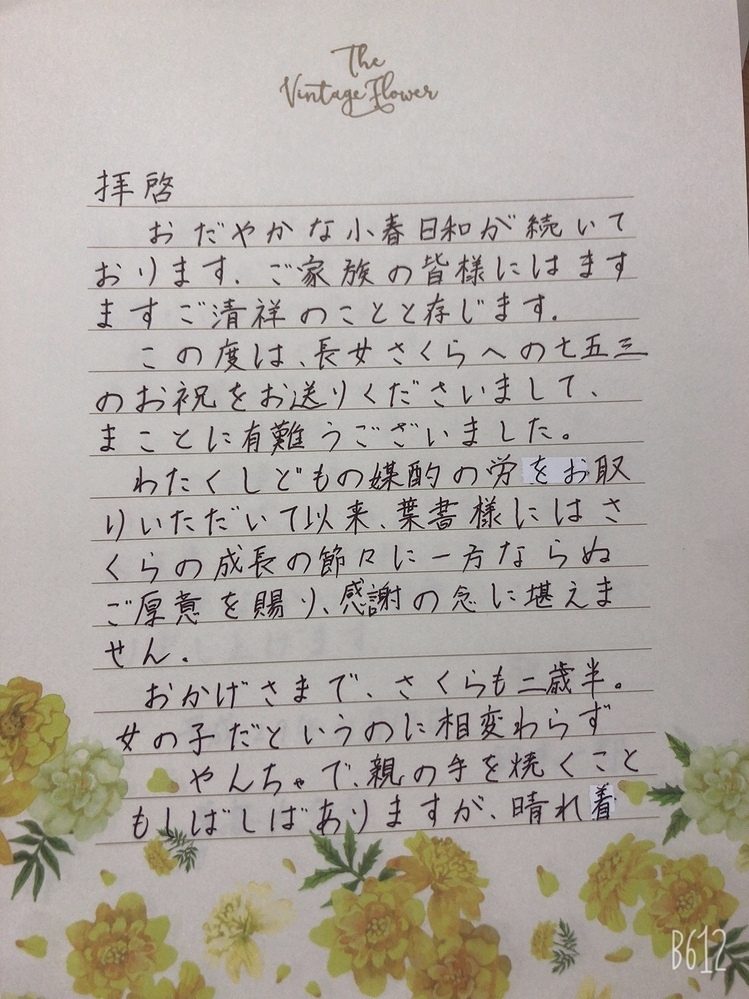 The
Vintage Flower
拝啓
おだやかな小春日和が続いて
おります。ご家族の皆様にはます
ますご清祥のことと存じます。
この度は、長女さくらへの七五三
のお祝をお送りくださいまして、
まことに有難うございました。
わたくしどもの媒酌の労をお取
りいただいて以来、葉書様にはさ
くらの成長の節々に一方ならぬ
ご厚意を賜り、感謝の念に堪えま
せん。
おかげさまで、さくらも二歳半。
女の子だというのに相変わらず
やんちゃで、親の手を焼くこと
もしばしばありますが、晴れ着
B612